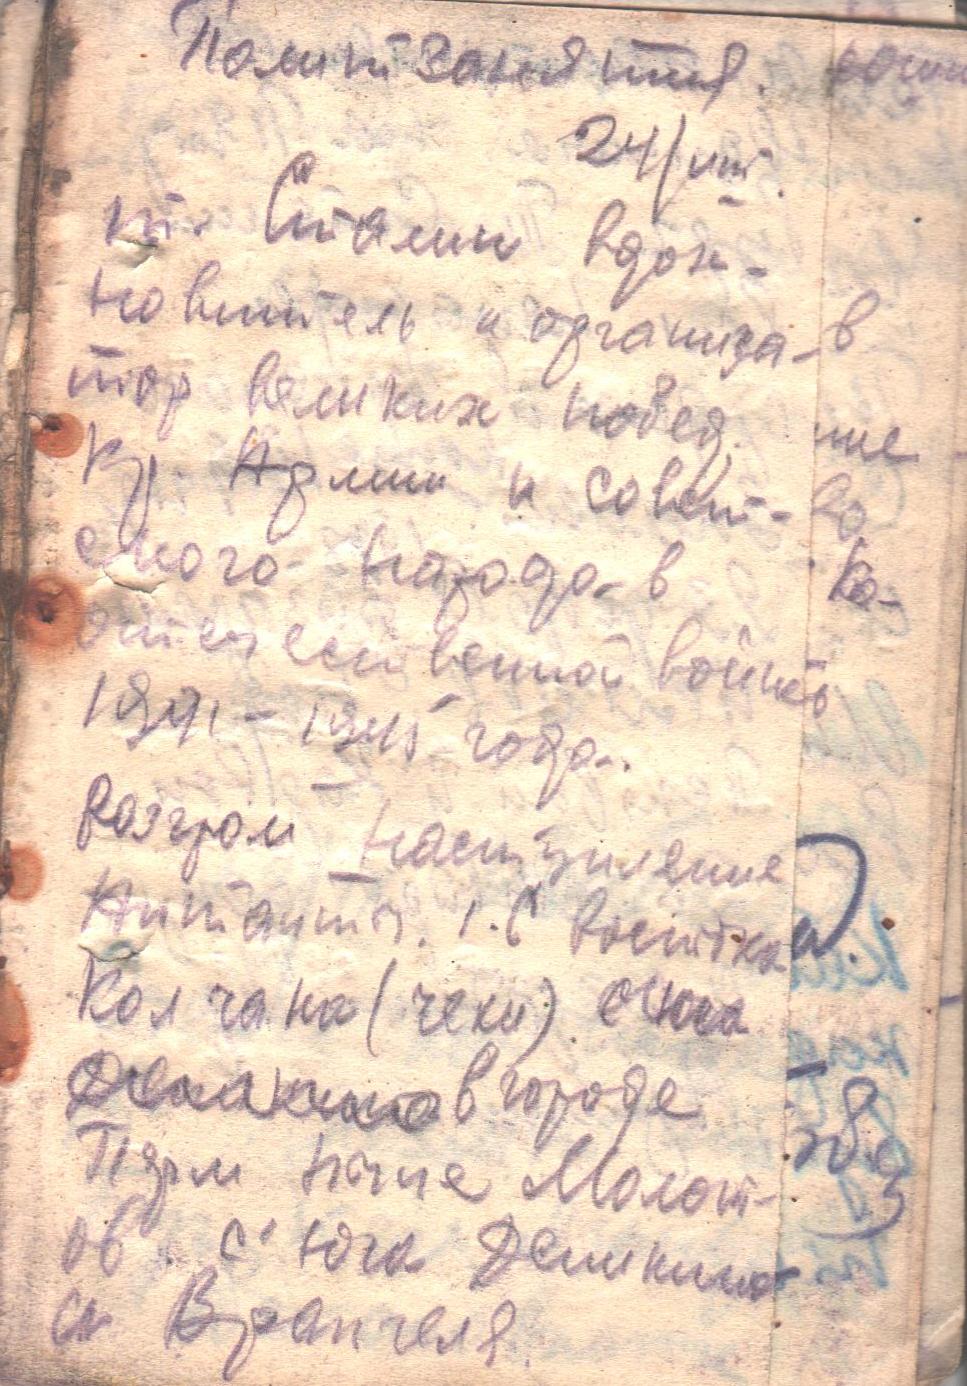 Политзанятия.
24/VIII.
т. Сталин вдох-
новитель и организа-
тор великих побед.
Кр. Армии и совет-
ского народа в
отечественной войны
1941-1945 года.
Разгром наступление
Антанты. 1. С востока
Колчана (чехи) с юга
Деникина в городе
Перм ныне Молот-
ов. с юга Деникина
и Врангеля.